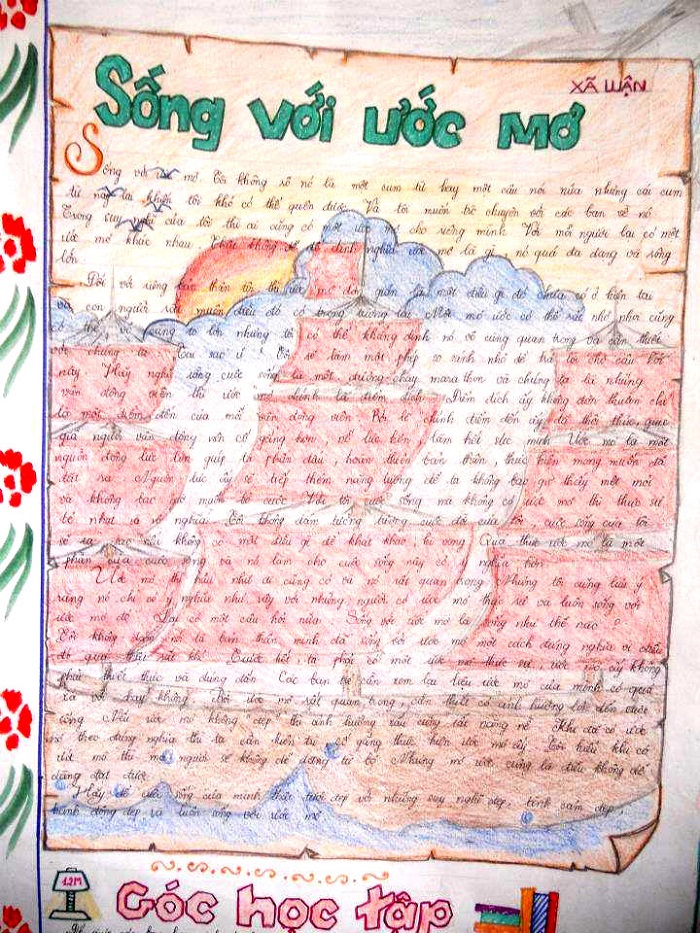 XÃ LUẬN
Sống với ước mơ
Sống với ước mơ Tôi không rõ nó là một cụm từ hay một câu nói nữa nhưng cái cụm
từ này lại khiến tôi khó có thể quên được Và tôi muốn trò chuyện với các bạn về nó
Trong suy nghĩ của tôi thì ai cũng có một ước mơ cho riêng mình Và mỗi người lại có một
ước mơ khác nhau không thể định nghĩa ước mơ là gì, nó quá đa dạng và rộng
lớn
Đối với riêng bản thân tôi thì ước mơ đó đơn giản là một điều gì đó chưa có ở hiện tại
và con người ta muốn điều đó có trong tương lai Một ước mơ có thể rất nhỏ nhưng cũng
có thể vô cùng to lớn nhưng tôi có thể khẳng định nó vô cùng quan trọng và cần thiết
với chúng ta Tại sao ư? Tôi sẽ làm một phép so sánh nhỏ để trả lời cho câu hỏi
này Hãy nghĩ rằng cuộc sống là một đường chạy marathon và chúng ta là những
vận động viên thì ước mơ chính là điểm đích Điểm đích ấy không đơn thuần chỉ
là một điểm đến của mỗi vận động viên Bởi lẽ chính điểm đến ấy đã thôi thúc, giúp
người vận động viên cố gắng hơn nỗ lực tiến làm hết sức mình Ước mơ là một
nguồn động lực lớn giúp ta phấn đấu, hoàn thiện bản thân, thực hiện mong muốn đã
đặt ra Nguồn lực ấy sẽ tiếp thêm năng lượng để ta không bao giờ thấy mệt mỏi
và không bao giờ muốn bỏ cuộc Với tôi cuộc sống mà không có ước mơ thì thực sự
tẻ nhạt và vô nghĩa Tôi không dám tưởng tượng cuộc đời của tôi cuộc sống của tôi
sẽ ra sao nếu không có một điều gì để khát khao hi vọng Quả thực ước mơ là một
phần của cuộc sống và nó làm cho cuộc sống này có nghĩa hơn
Ước mơ thì hầu như ai cũng có và nó rất quan trọng Nhưng tôi cũng lưu ý
rằng nó chỉ có ý nghĩa như vậy với những người có ước mơ thực sự và luôn sống với
ước mơ đó Lại có một câu hỏi nữa Sống với ước mơ là sống như thế nào?
Tôi không dám nói là bản thân mình đã sống với ước mơ một cách đúng nghĩa vì điều
đó quả thật rất khó Trước tiết, ta phải có một ước mơ thực sự, ước mơ ấy không
phải thiết thực và đúng đắn Các bạn hãy cần xem lại liệu ước mơ của mình có quá
xa vời hay không Bởi ước mơ rất quan trọng, cần thiết có ảnh hưởng lớn đến cuộc
sống Nếu ước mơ không đẹp thì ảnh hưởng xấu cũng rất nặng nề Khi đã có ước
mơ theo đúng nghĩa thì ta cần kiên trì cố gắng thực hiện ước mơ ấy Tôi hiểu khi có
ước mơ thì mọi người sẽ không dễ dàng từ bỏ Nhưng mơ ước cũng là điều không dễ
dàng đạt được
Hãy để cuộc sống của mình thật tươi đẹp với những suy nghĩ đẹp tình cảm đẹp,
hành động đẹp và luôn sống với ước mơ
12M
Góc học tập